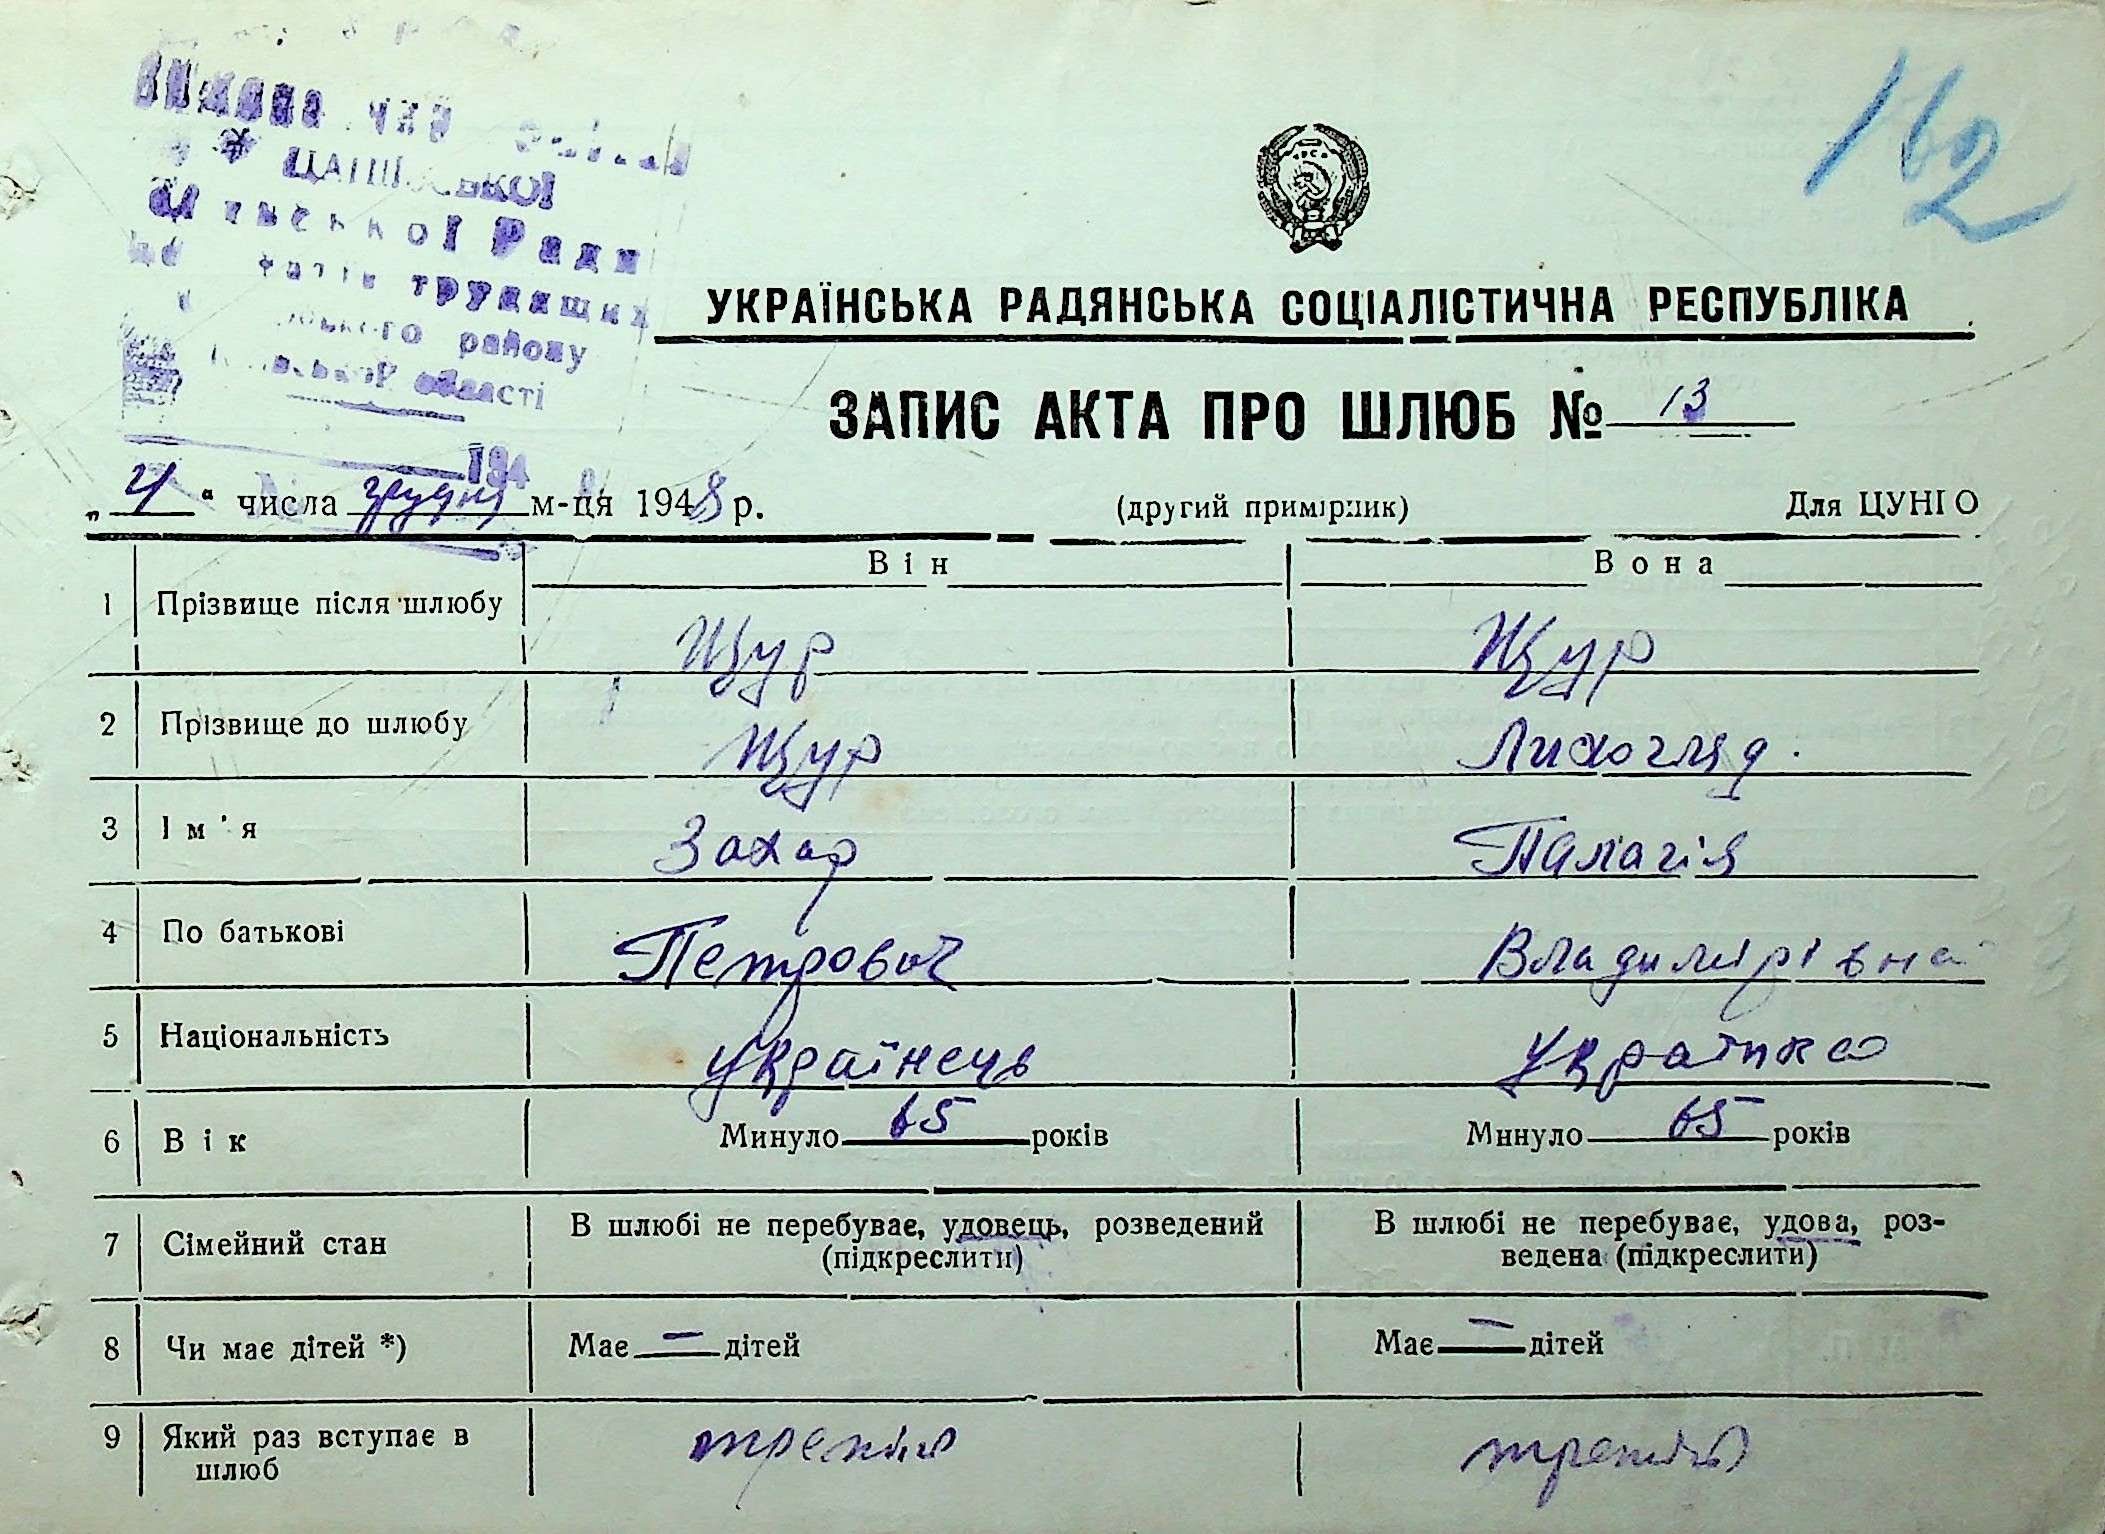 162
ЦАШ
Ради
трудящих
району
області
194
УКРАЇНСЬКА РАДЯНСЬКА СОЦІАЛІСТИЧНА РЕСПУБЛІКА
ЗАПИС АКТА ПРО ШЛЮБ № 13
" числа грудня м-ця 1948 р. (другий примірник) Для ЦУНГО
Він Вона
1 Прізвище після шлюбу Щур Щур
2 Прізвище до шлюбу Щур Лихогляд.
3 Ім'я Захар Палагія
4 По батькові Петрович Владимірівна
5 Національність українець украінка
6 Вік Минуло 65 років Минуло 65 років
7 Сімейний стан В шлюбі не перебуває, удовець, розведений В шлюбі не перебуває, удова, роз-
(підкреслити) ведена (підкреслити)
8 Чи має дітей *) Має — дітей Має — дітей
9 Який раз вступає в третій третій
шлюб